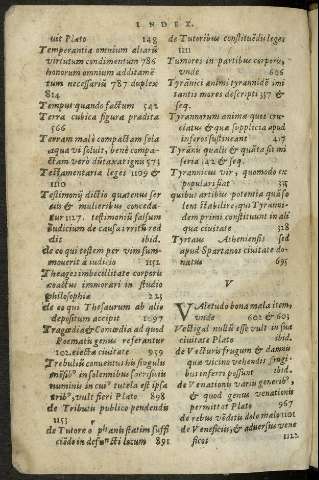 INDEX.
uit Plato 148
Temperantia omnium aliarū
virtutum condimentum 786
honorum omnium additamē
tum necessariū 787 duplex
814
Tempus quando factum 542
Terra cubica figura prædita
566
Terram molè compactam sola
aqua vi soluit, benè compa-
ctam verò dūtaxat ignis 573
Testamentaria leges 1109 &
1110
Testimonij dictio quatenus ser
uis & mulieribus conceda-
tur 1127. testimoniū falsum
iudicium de causa irritū red
dit ibid.
de eo qui testem per vim sum-
mouerit a iudicio 1151
Theages imbecillitate corporis
coactus immorari in studio
philosophiæ 225
de eo qui Thesaurum ab alio
depositum accipit 1097
Tragœdia & Comœdia ad quod
Poematis genus referantur
102. eiecta ciuitate 959
Trebulis
numinis in cui⁹ tutela est ipsa
trib⁹, vult fieri Plato 898
de Tributis publico pendendis
1153
de Tutore orphanis statim suffi
ciēdo in defuncti locum 891
de Tutoribus constituēdis leges
1111
Tumores in partibus corporis,
vnde 606
Tyrānici animi tyrannidē imi
tantis mores descripti 357 &
seq.
Tyrannorum anima quæ cru-
ciatus & quæ supplicia apud
inferos sustineant 417
Tyrāni qualis & quāta sit mi
seria 142 & seq.
Tyrannicus vir, quomodo ex
populari fiat 315
quibus artibus potentiā quā so
lent stabilire, qui Tyranni-
dem primi constituunt in ali
qua ciuitate 328
Tyrtæus Atheniensis sed
apud Spartanos ciuitate do-
natus 695
V
Valetudo bona mala item,
vnde 602 & 605
Vectigal nullū esse vult in sua
ciuitate Plato ibid.
de Vecturis frugum & damnis
quæ vicinis vehendis fingi-
bus inferri possunt ibid.
de Venationis variis generib⁹,
& quod genus venationis
permittat Plato 967
de rebus vēditis dolo malo 1101
de Veneficiis, & aduersus vene
ficos 1122